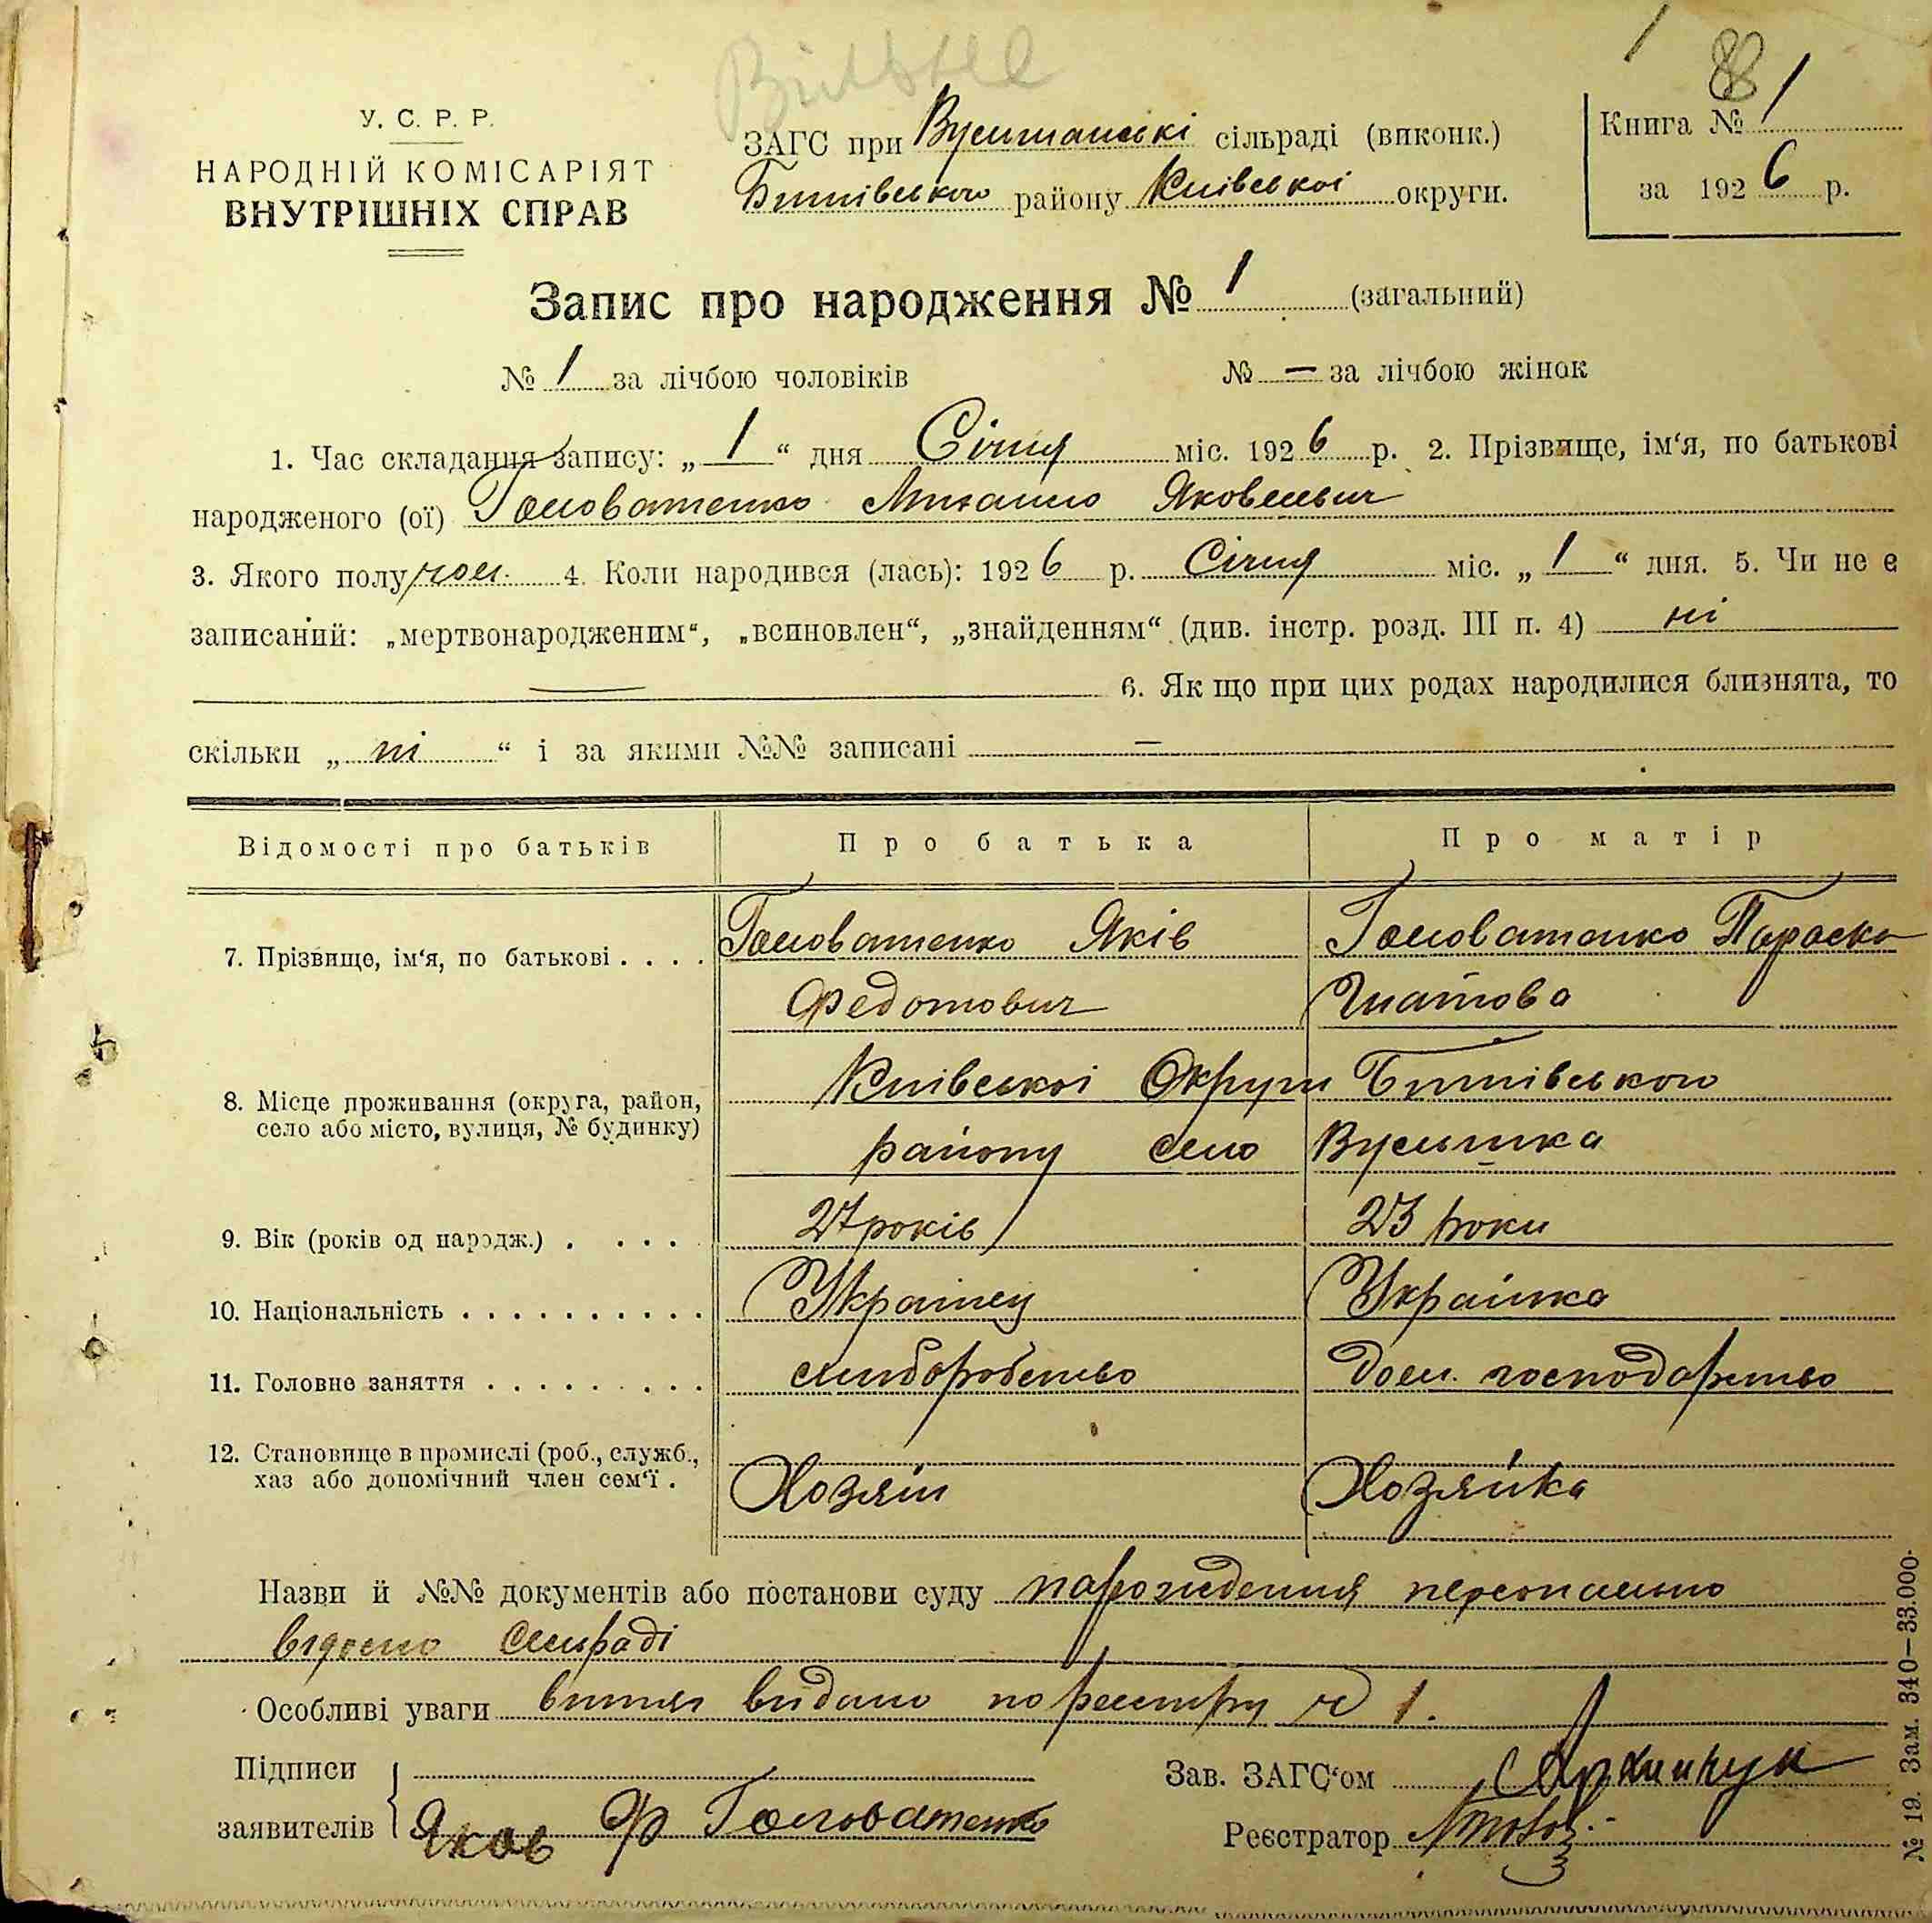 Вільне
1 88
У. С. Р. Р.
НАРОДНІЙ КОМІСАРІЯТ
ВНУТРІШНІХ СПРАВ
ЗАГС при сільраді (виконк.)
району Київської округи.
Книга № 1
за 1926 р.
Запис про народження № 1 (загальний)
№ 1 за лічбою чоловіків № — за лічбою жінок
1. Час складання запису: „ 1 “ дня Січня міс. 1926 р. 2. Прізвище, ім‘я, по батькові
народженого (ої) Головатенко Михайло Яковлевич
3. Якого полу чол. 4. Коли народився (лась): 1926 р. Січня міс. „ 1 “ дня. 5. Чи не є
записаний: „мертвонародженим“, „всиновлен“, „знайденням“ (див. інстр. розд. III п. 4) ні
— 6. Як що при цих родах народилися близнята, то
скільки „ ні “ і за якими №№ записані —
Відомості про батьків Про батька Про матір
7. Прізвище, ім‘я, по батькові . . . . Головатенко Яків Головатенко Параска
Федотович
8. Місце проживання (округа, район, Київськоі Округи
село або місто, вулиця, № будинку) району село
9. Вік (років од народж.) . . . . 27 років 23 роки
10. Національність . . . . . . . . . . Украінец Украінка
11. Головне заняття . . . . . . . . . хліборобство дом. господарство
12. Становище в промислі (роб., служб.,
хаз або допомічний член сем‘ї . Хозяін Хозяйка
Назви й №№ документів або постанови суду народження персонально
відомо сільраді
Особливі уваги витяг видано по реєстру № 1.
Підписи Зав. ЗАГС‘ом
заявителів Яков Ф Головатенко Реєстратор
№ 19. Зам. 340—33.000.